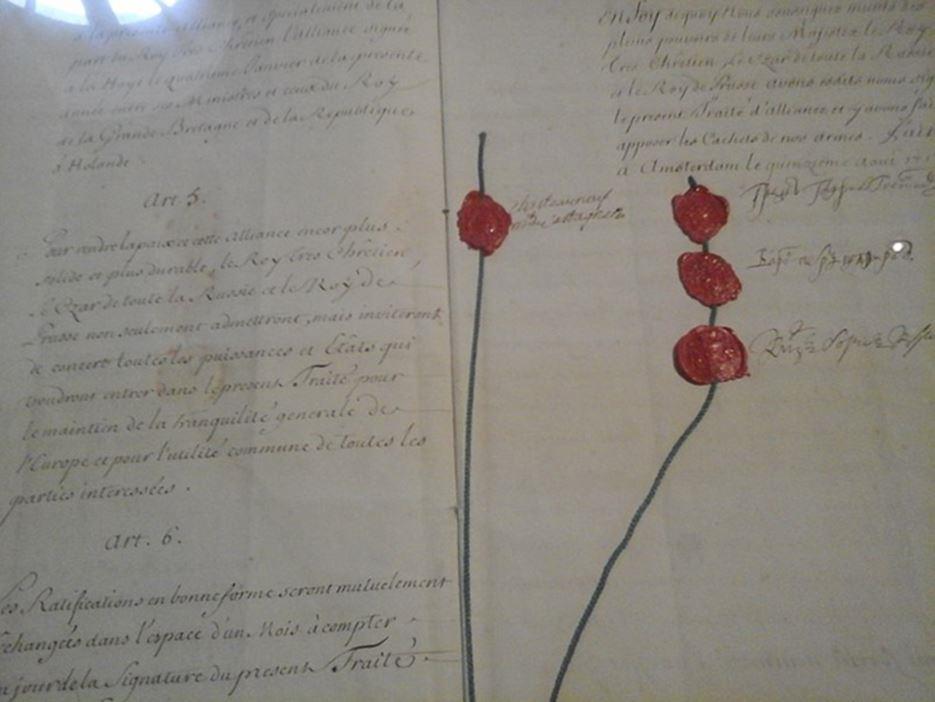 à la presente alliance, et specialement de la
part du Roy Tres Chrétien l'alliance signée
à la Haye le quatrieme Janvier de la presente
année entre ses Ministres et ceux du Roy
de la Grande Bretagne et de la Republique
d'Holande.
Art. 5.
Pour rendre la paix et cette Alliance encor plus
solide et plus durable, le Roy tres Chrétien,
le Czar de toute la Russie et le Roy de
Prusse non seulement admettront, mais inviteront
de concert toutes les puissances et Etats qui
voudront entrer dans le present Traité pour
le maintien de la tranquilité generale de
l'Europe et pour l'utilité commune de toutes les
parties interessées.
Art. 6.
Les Ratifications en bonne forme seront mutuelement
échangées dans l'espace d'un Mois à compter
du jour de la Signature du present Traité.
En foy dequoy Nous soussignés munis des
pleins pouvoirs de leurs Majestés le Roy
Tres Chrétien, le Czar de toute la Russie
et le Roy de Prusse avons esdits noms
le present Traité d'alliance et y avons fait
apposer les Cachets de nos armes. Fait
a Amsterdam le quinzieme Aout
chasteauneuf